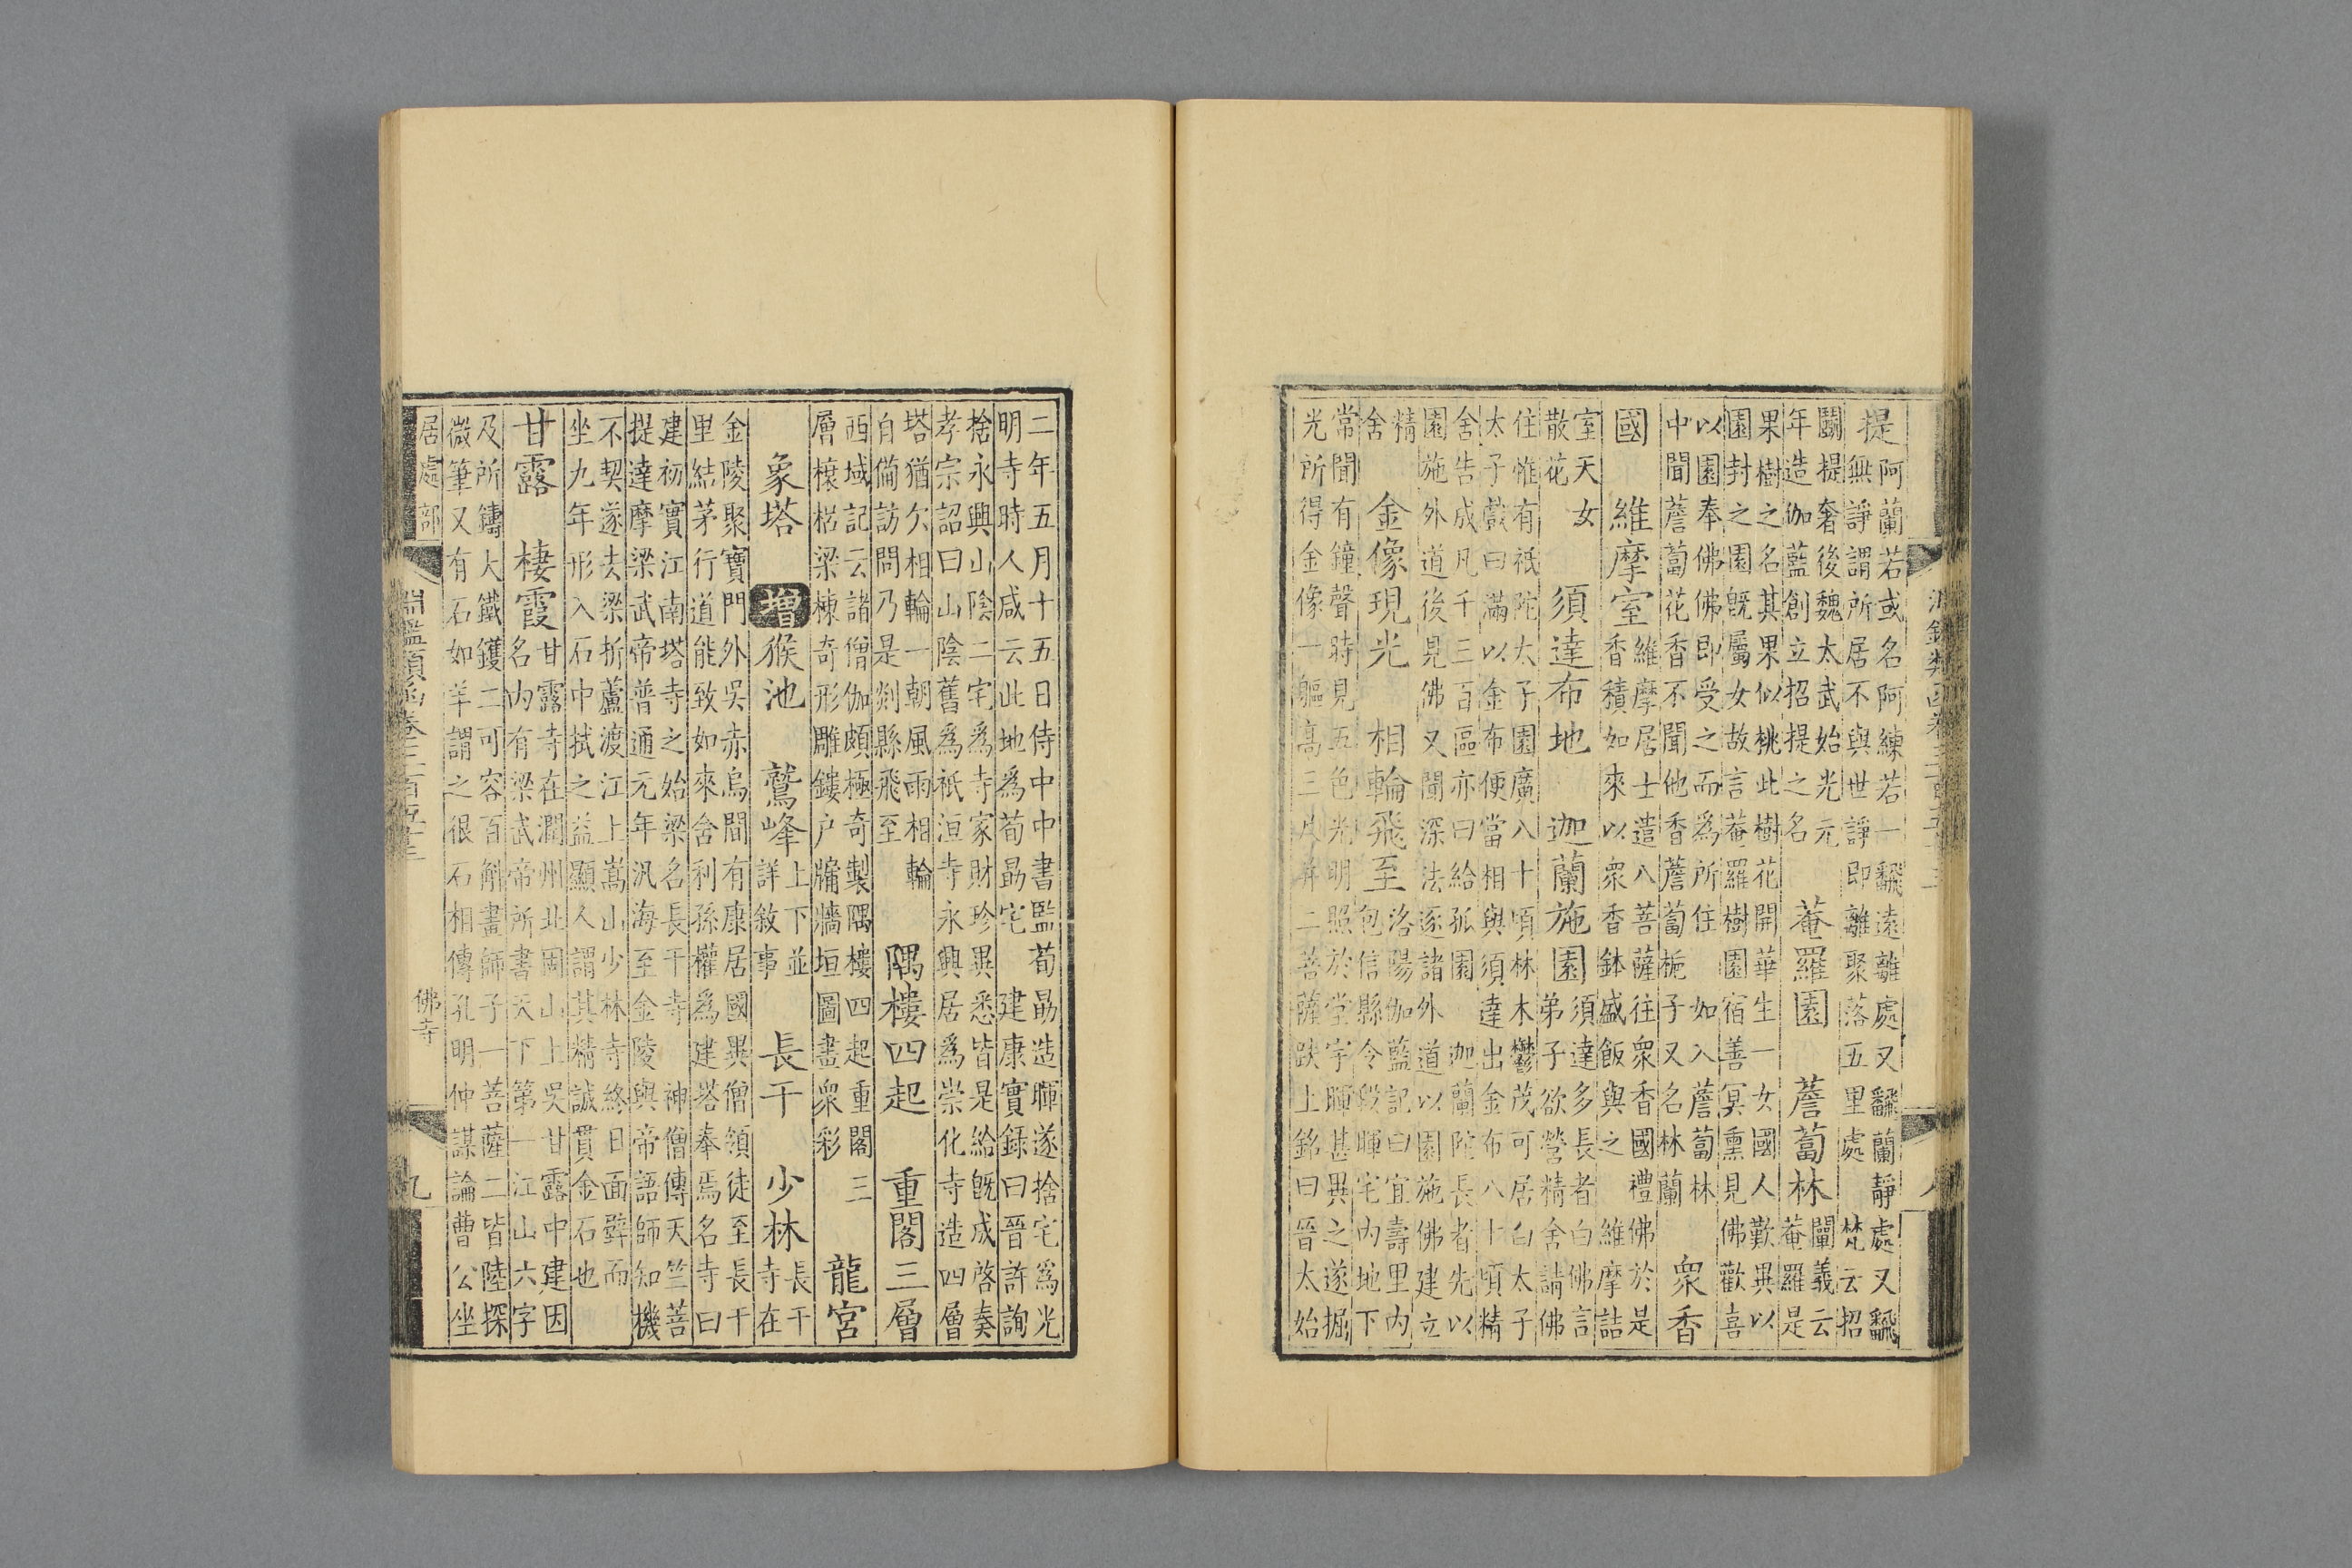 提
阿蘭若或名阿練若一翻遠離處又翻蘭靜處又翻
無諍謂所居不與世諍即離聚落五里處　梵云招
鬪提奢後魏太武始光元
年造伽藍創立招提之名
菴羅園　薝蔔林
闡義云
菴羅是
果樹之名其果似桃此樹花開華生一女國人歎異以
園封之園旣屬女故言菴羅樹園宿善冥熏見佛歡喜
以園奉佛佛即受之而為所住　如入薝蔔林
中聞薝蔔花香不聞他香薝蔔梔子又名林蘭
衆香
國　維摩室
維摩居士遣八菩薩往衆香國禮佛於是
香積如來以衆香鉢盛飯與之　維摩詰
室天女
散花
須達布地　迦蘭施園
須達多長者白佛言
弟子欲營精舍請佛
住惟有祇陀太子園廣八十頃林木鬱茂可居白太子
太子戲曰滿以金布便當相與須達出金布八十頃精
舍告成凡千三百區亦曰給孤園　迦蘭陀長者先以
園施外道後見佛又聞深法逐諸外道以園施佛建立
精
舍
金像現光　相輪飛至
洛陽伽藍記曰宜壽里内
包信縣令段暉宅内地下
常聞有鐘聲時見五色光明照於堂宇暉甚異之遂掘
光所得金像一軀高三尺并二菩薩趺上銘曰晉太始
二年五月十五日侍中中書監荀勗造暉遂捨宅爲光
明寺時人咸云此地爲荀勗宅　建康實録曰晉許詢
捨永興山陰二宅爲寺家財珍異悉皆是給旣成啓奏
孝宗詔曰山陰舊爲祇洹寺永興居爲崇化寺造四層
塔猶欠相輪一朝風雨相輪
自備訪問乃是剡縣飛至
隅樓四起　重閣三層
西域記云諸僧伽頗極奇製隅樓四起重閣三
層榱梠梁棟奇形雕鏤户牖牆垣圖畫衆彩
龍宮
象塔　增猴池　鷲峰
上下並
詳敘事
長干　少林
長干
寺在
金陵聚寶門外吳赤烏間有康居國異僧領徒至長干
里結茅行道能致如來舍利孫權爲建塔奉焉名寺曰
建初實江南塔寺之始梁名長干寺　神僧傳天竺菩
提達摩梁武帝普通元年汎海至金陵與帝語師知機
不契遂去梁折蘆渡江上嵩山少林寺終日面壁而
坐九年形入石中拭之益顯人謂其精誠貫金石也
甘露　棲霞
甘露寺在潤州北固山上吳甘露中建因
名内有梁武帝所書天下第一江山六字
及所鑄大鐵鑊二可容百斛畫師子一菩薩二皆陸探
微筆又有石如羊謂之很石相傳孔明仲謀論曹公坐
居處部
淵鑑類函卷三百五十三
佛寺
九